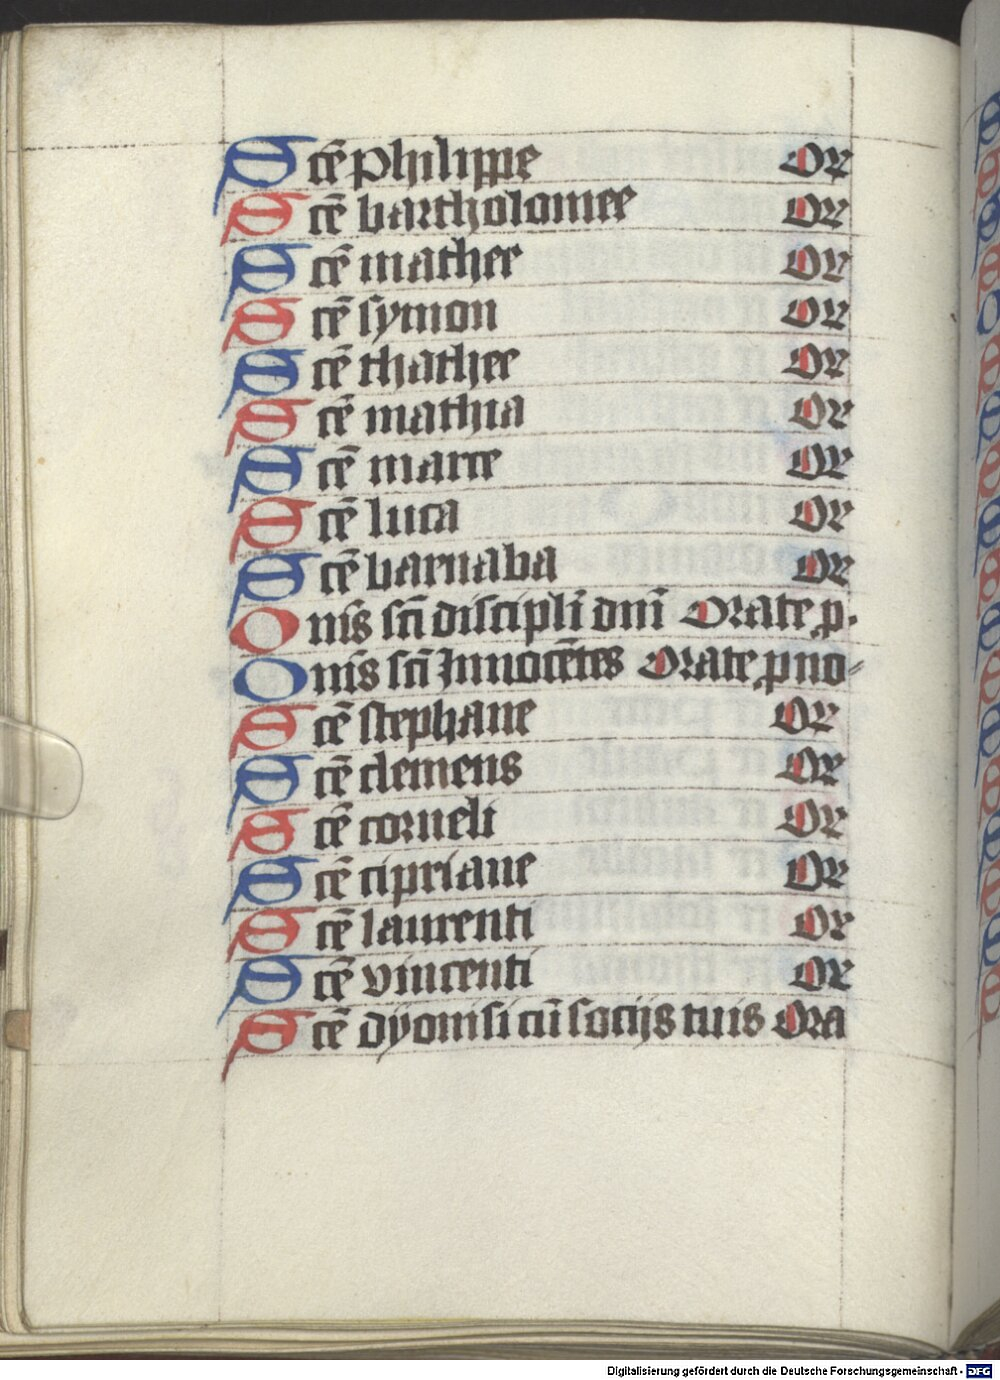 Scē Philippe Or
Scē bartholomee Or
Scē mathee Or
Scē symon Or
Scē thathee Or
Scē mathia Or
Scē marce Or
Scē luca Or
Scē barnaba Or
Om̄s sc̄i discipli dn̄i Orate p.
Om̄s sc̄i Innocētes Orate p no
Scē stephane Or
Scē clemens Or
Scē corneli Or
Scē cipriane Or
Scē laurenti Or
Scē vincenti Or
Scē dyonisi cū socijs tuis Ora
Digitalisierung gefördert durch die Deutsche Forschungsgemeinschaft - DFG